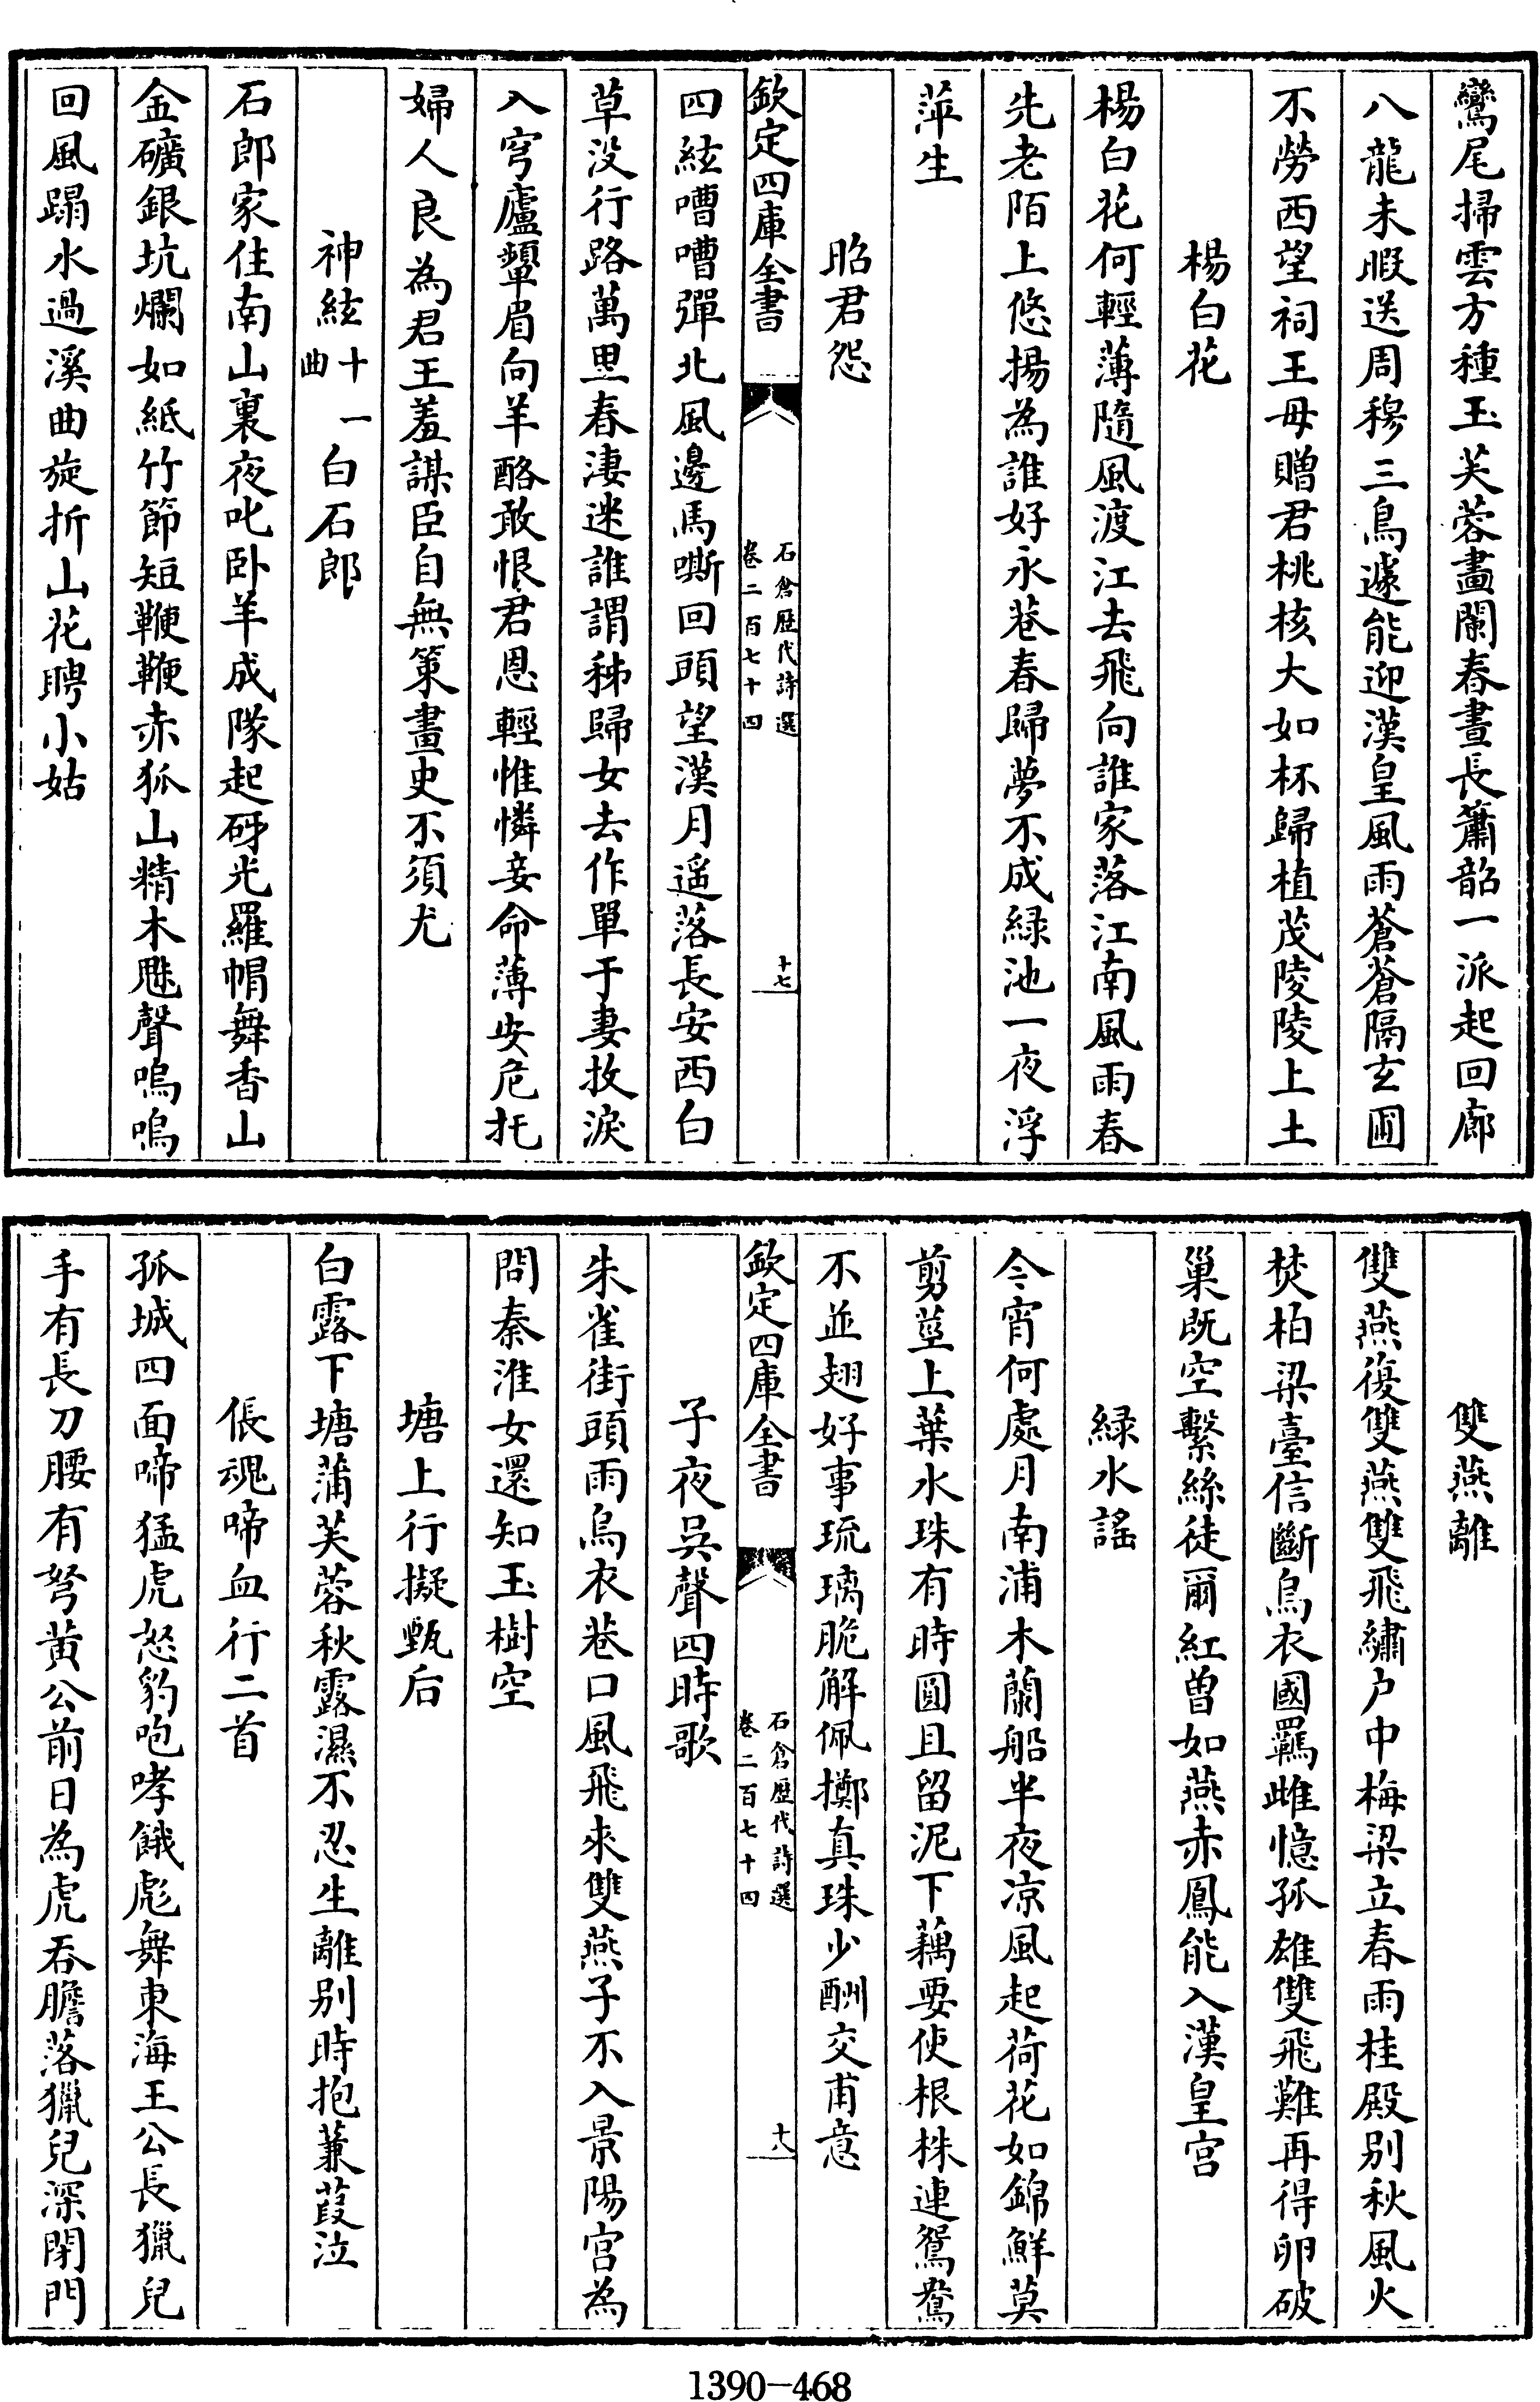 鸞尾掃雲方種玉芙蓉畫闌春晝長簫韶一派起回廊
八龍未暇送周穆三鳥遽能迎漢皇風雨蒼蒼隔玄圃
不勞西望祠王母贈君桃核大如杯歸植茂陵陵上土
楊白花
楊白花何輕薄隨風渡江去飛向誰家落江南風雨春
先老陌上悠揚為誰好永巷春歸夢不成緑池一夜浮
萍生
昭君怨
欽定四庫全書
石倉歷代詩選
卷二百七十四
十七
四絃嘈嘈彈北風邊馬嘶回頭望漢月遥落長安西白
草没行路萬里春淒迷誰謂秭歸女去作單于妻抆淚
入穹廬顰眉向羊酪敢恨君恩輕惟憐妾命薄安危托
婦人良為君王羞謀臣自無策畫史不須尤
神絃十一曲 白石郎
石郎家住南山裏夜叱卧羊成隊起砑光羅帽舞香山
金礦銀坑爛如紙竹節短鞭鞭赤狐山精木魅聲嗚嗚
回風蹋水過溪曲旋折山花聘小姑
雙燕離
雙燕復雙燕雙飛繡户中梅梁立春雨桂殿別秋風火
焚柏梁臺信斷烏衣國羈雌憶孤雄雙飛難再得卵破
巢既空繫絲徒爾紅曽如燕赤鳳能入漢皇宫
緑水謡
今宵何處月南浦木蘭船半夜凉風起荷花如錦鮮莫
剪莖上葉水珠有時圓且留泥下藕要使根株連鴛鴦
不並翅好事琉璃脆解佩擲真珠少酬交甫意
欽定四庫全書
石倉歷代詩選
卷二百七十四
十八
子夜吳聲四時歌
朱雀街頭雨烏衣巷口風飛來雙燕子不入景陽宫為
問秦淮女還知玉樹空
塘上行擬甄后
白露下塘蒲芙蓉秋露濕不忍生離别時抱蒹葭泣
倀魂啼血行二首
孤城四面啼猛虎怒豹咆哮餓彪舞東海王公長獵兒
手有長刀腰有弩黄公前日為虎吞膽落獵兒深閉門
1390-468